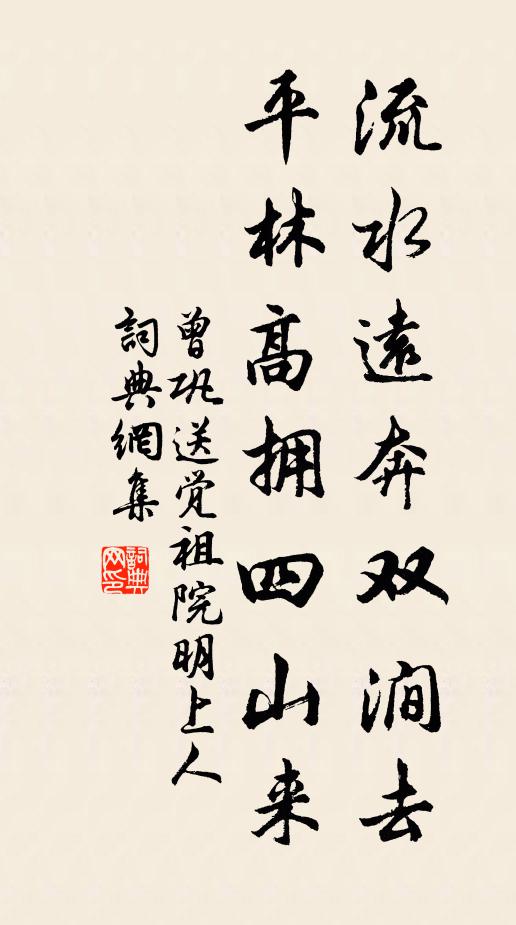 流水遠奔双澗去
平林高拥四山来
曾巩送觉祖院明上人
詞典網集
詞典网印